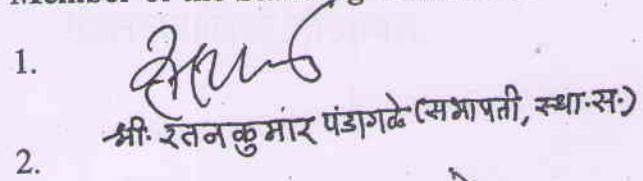 1.
श्री. रतनकुमार पंडागळे (सभापती, स्था.स.)
2.